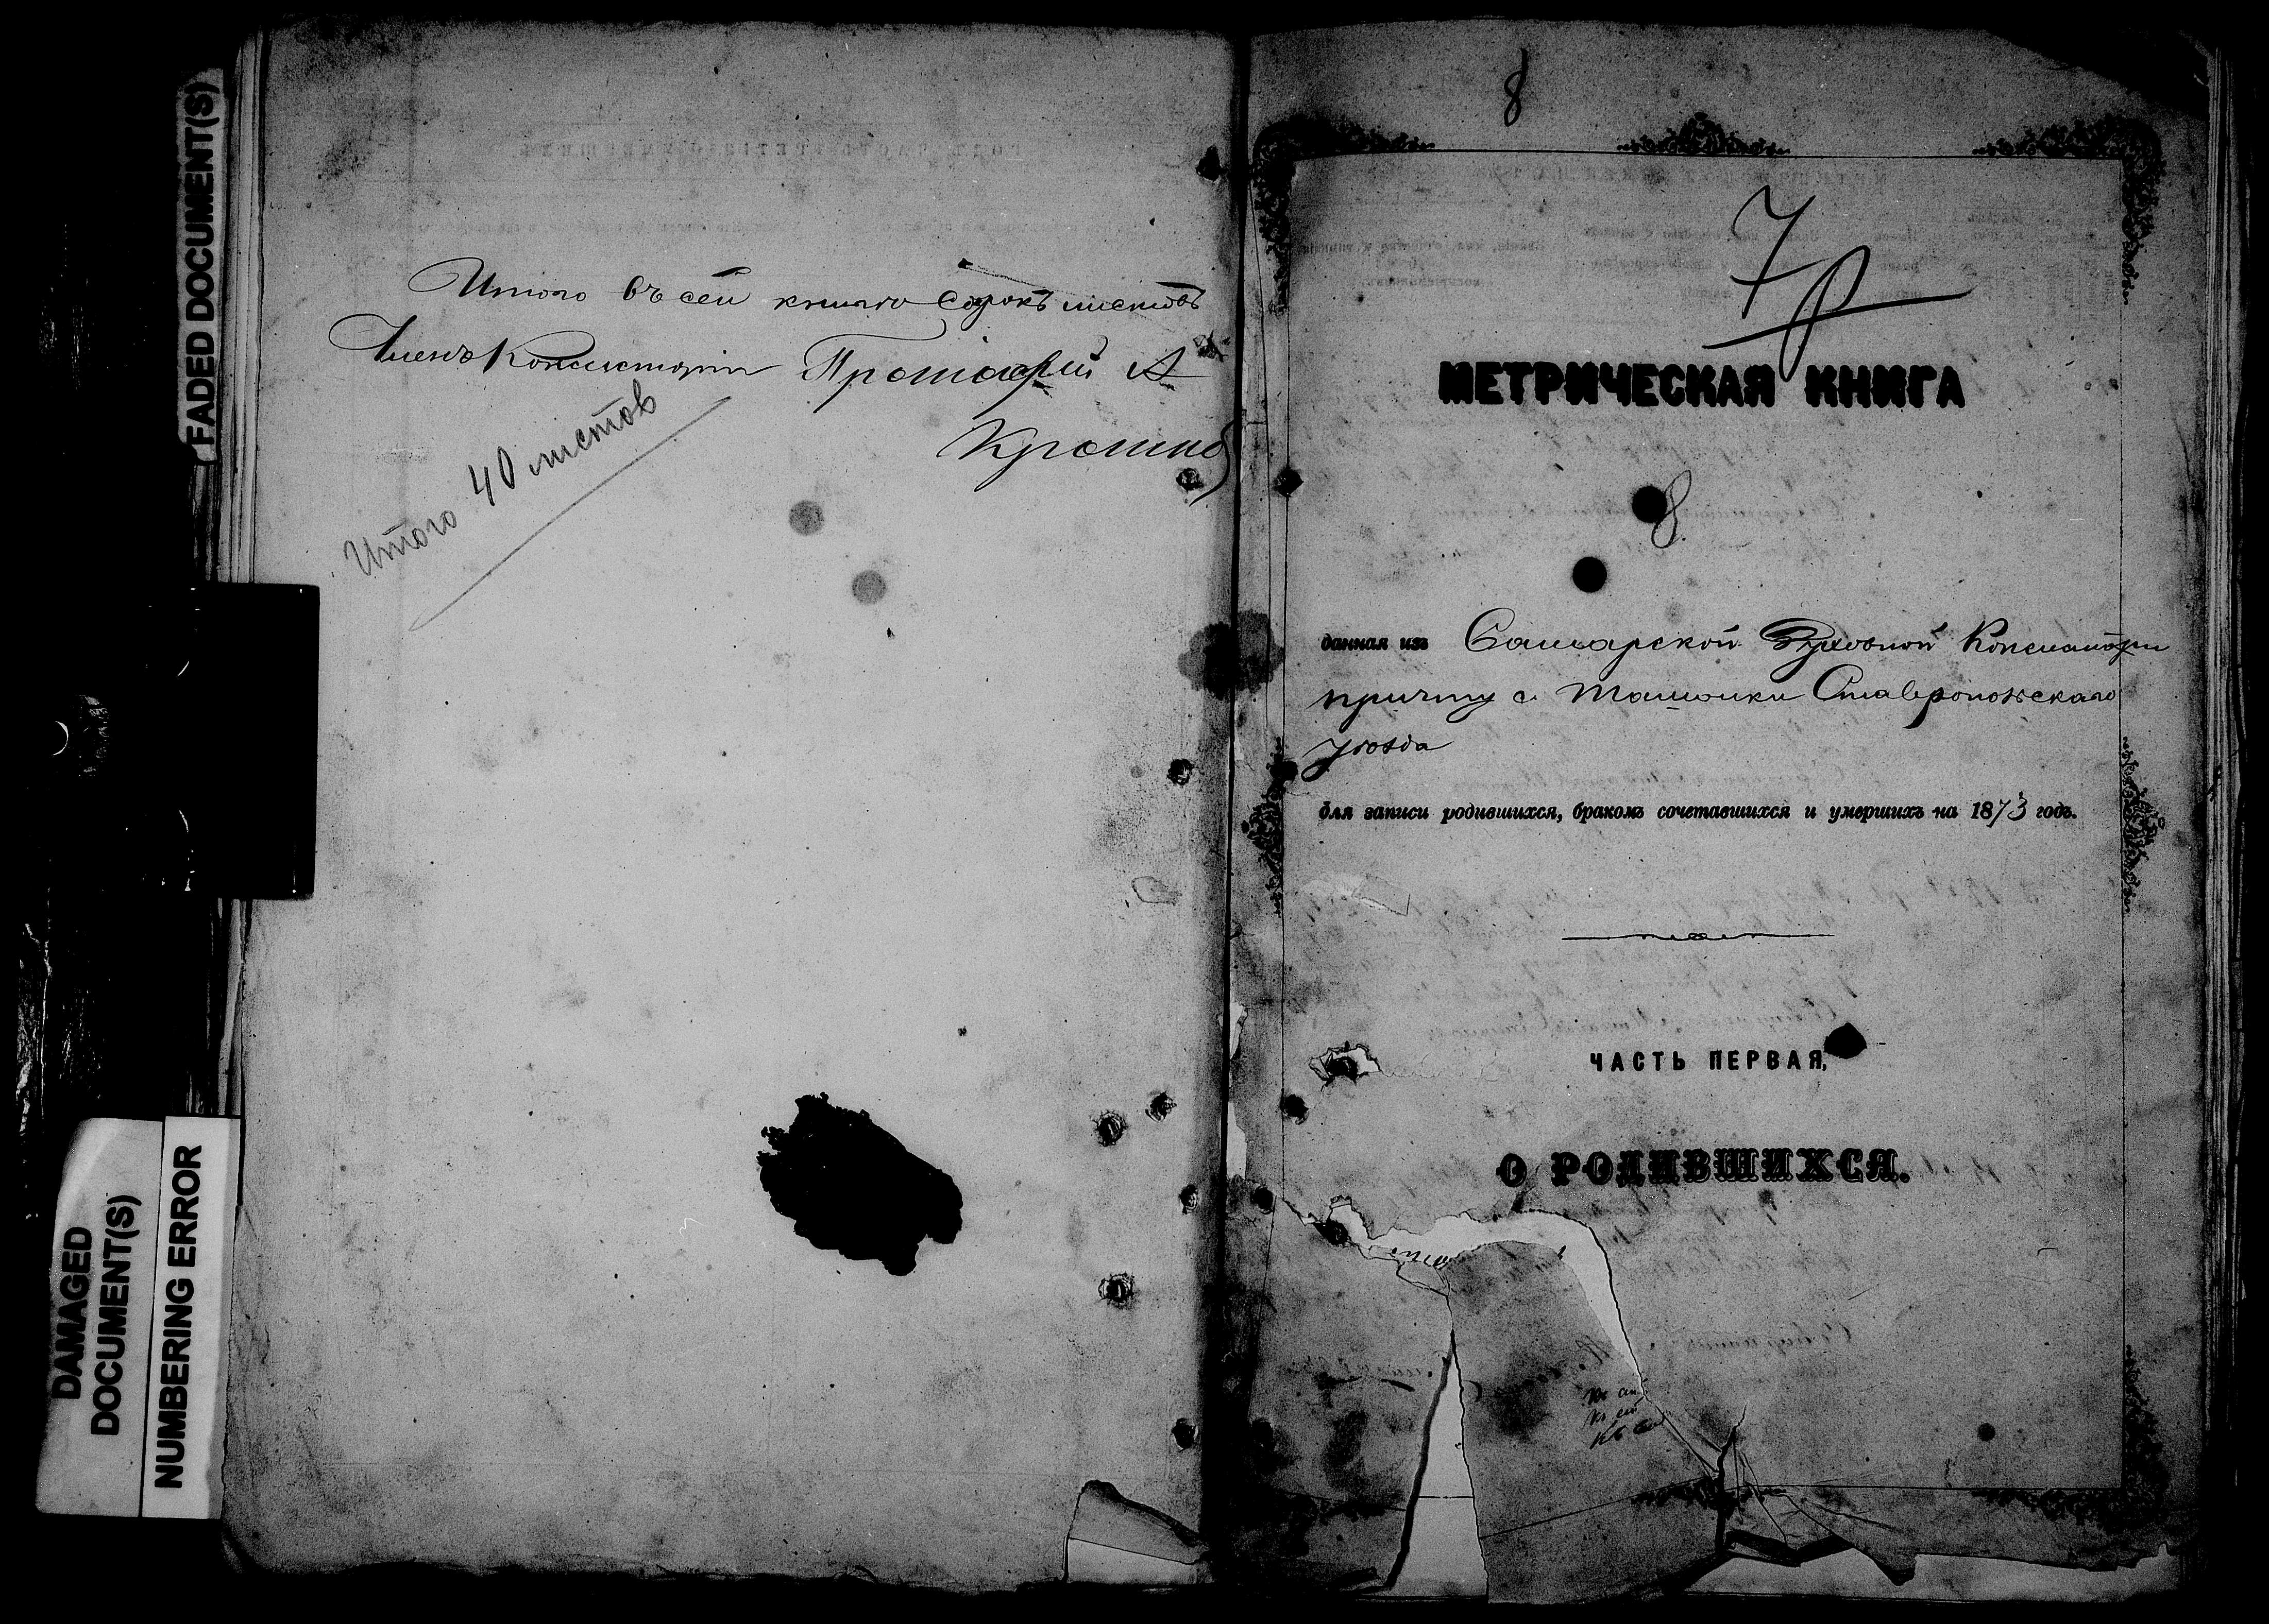 FADED DOCUMENT(S)
DAMAGED
DOCUMENT(S)
NUMBERING ERROR
Итого въ сей книгѣ сорокъ листовъ
Членъ Консисторіи Протоіерей А
Итого 40 листов
8
7
МЕТРИЧЕСКАЯ КНИГА
8
данная изъ Самарской Духовной Консисторіи
причту с. Ташолки Ставропольскаго
уѣзда
для записи родившихся, бракомъ сочетавшихся и умершихъ на 1873 годъ.
ЧАСТЬ ПЕРВАЯ,
О РОДИВШИХСЯ.